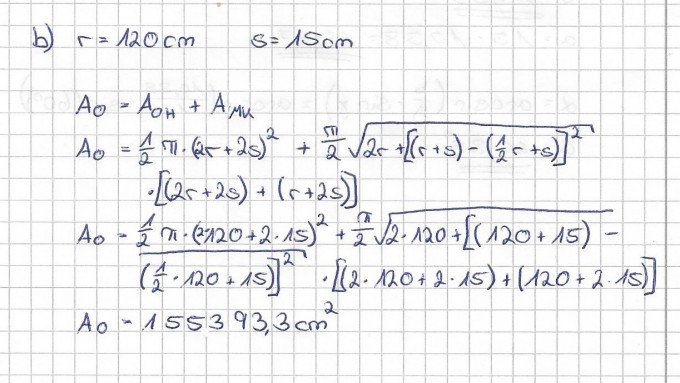 b) r = 120cm s = 15cm
A₀ = A₀ₕ + Aₘₖ
A₀ = 1/2 π · (2r + 2s)² + π/2 √2r + [(r+s) - (1/2 r + s)]²
· [(2r + 2s) + (r + 2s)]
A₀ = 1/2 π · (2·120 + 2·15)² + π/2 √2·120 + [(120 + 15) -
(1/2 · 120 + 15)]² · [(2·120 + 2·15) + (120 + 2·15)]
A₀ = 155393,3 cm²